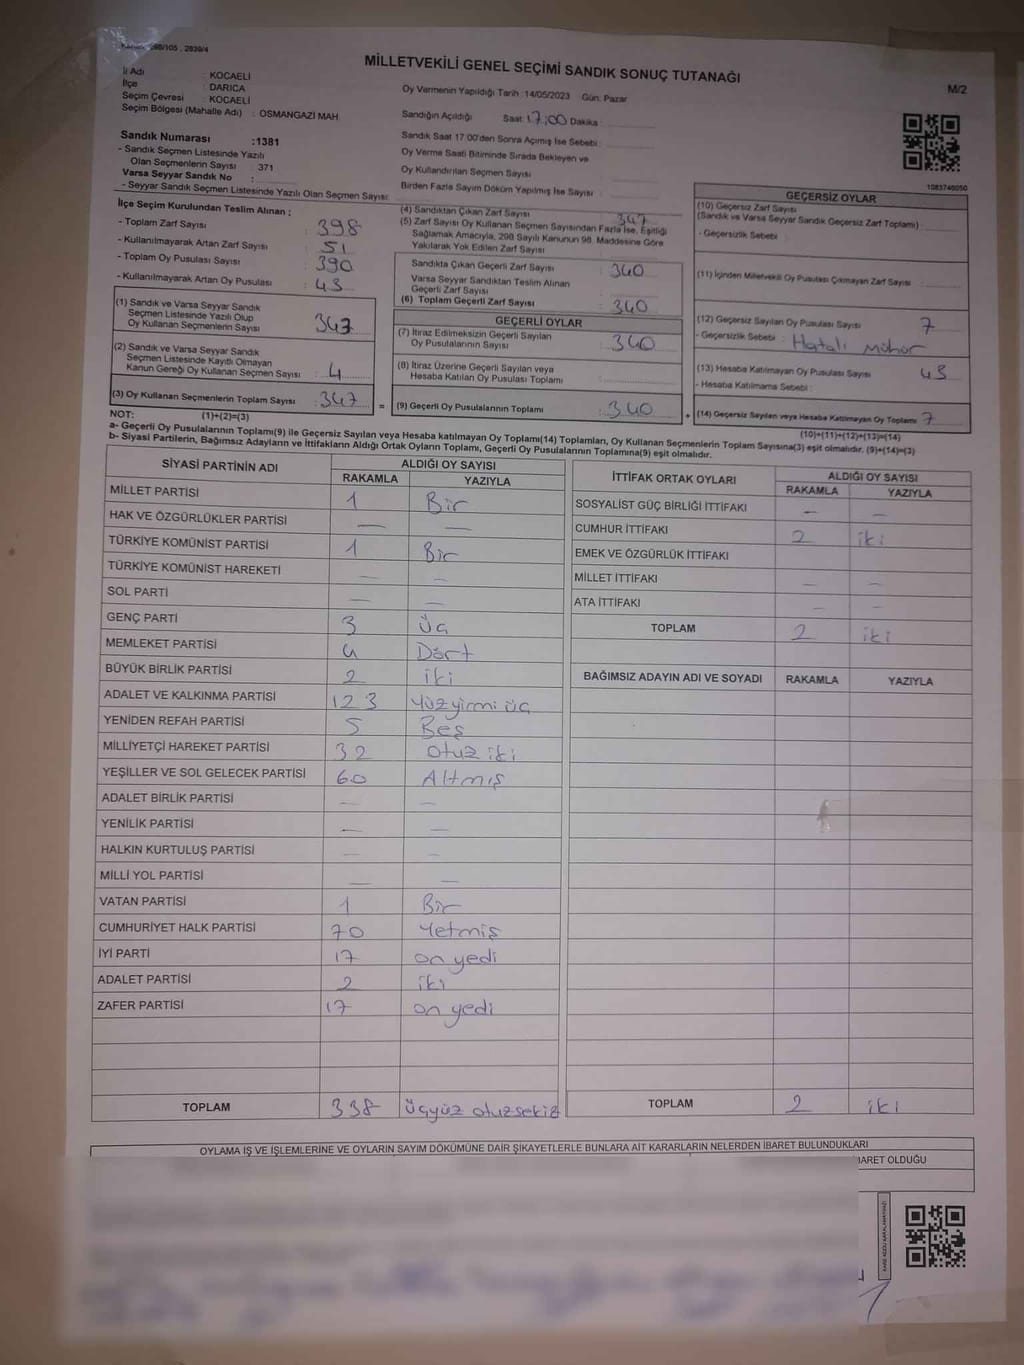 Kanun: 298/105 , 2839/4
MİLLETVEKİLİ GENEL SEÇİMİ SANDIK SONUÇ TUTANAĞI
M/2
İl Adı : KOCAELİ
İlçe : DARICA
Seçim Çevresi : KOCAELİ
Seçim Bölgesi (Mahalle Adı) : OSMANGAZİ MAH.
Oy Vermenin Yapıldığı Tarih :14/05/2023 Gün: Pazar
Sandığın Açıldığı Saat: 17:00 Dakika :
Sandık Saat 17:00'den Sonra Açımış İse Sebebi :
Oy Verme Saati Bitiminde Sırada Bekleyen ve
Oy Kullandırılan Seçmen Sayısı :
Birden Fazla Sayım Döküm Yapılmış İse Sayısı :
Sandık Numarası :1381
- Sandık Seçmen Listesinde Yazılı
Olan Seçmenlerin Sayısı 371
Varsa Seyyar Sandık No :
- Seyyar Sandık Seçmen Listesinde Yazılı Olan Seçmen Sayısı:
1083746050
İlçe Seçim Kurulundan Teslim Alınan ;
- Toplam Zarf Sayısı : 398
- Kullanılmayarak Artan Zarf Sayısı : 51
- Toplam Oy Pusulası Sayısı : 390
- Kullanılmayarak Artan Oy Pusulası : 43
(1) Sandık ve Varsa Seyyar Sandık
Seçmen Listesinde Yazılı Olup
Oy Kullanan Seçmenlerin Sayısı : 343
(2) Sandık ve Varsa Seyyar Sandık
Seçmen Listesinde Kayıtlı Olmayan
Kanun Gereği Oy Kullanan Seçmen Sayısı : 4
(3) Oy Kullanan Seçmenlerin Toplam Sayısı : 347
(4) Sandıktan Çıkan Zarf Sayısı : 347
(5) Zarf Sayısı Oy Kullanan Seçmen Sayısından Fazla İse, Eşitliği
Sağlamak Amacıyla, 298 Sayılı Kanunun 98. Maddesine Göre
Yakılarak Yok Edilen Zarf Sayısı :
Sandıkta Çıkan Geçerli Zarf Sayısı : 340
Varsa Seyyar Sandıktan Teslim Alınan
Geçerli Zarf Sayısı :
(6) Toplam Geçerli Zarf Sayısı : 340
GEÇERLİ OYLAR
(7) İtiraz Edilmeksizin Geçerli Sayılan
Oy Pusulalarının Sayısı : 340
(8) İtiraz Üzerine Geçerli Sayılan veya
Hesaba Katılan Oy Pusulası Toplamı :
= (9) Geçerli Oy Pusulalarının Toplamı : 340
GEÇERSİZ OYLAR
(10) Geçersiz Zarf Sayısı
(Sandık ve Varsa Seyyar Sandık Geçersiz Zarf Toplamı) :
- Geçersizlik Sebebi :
(11) İçinden Milletvekili Oy Pusulası Çıkmayan Zarf Sayısı :
(12) Geçersiz Sayılan Oy Pusulası Sayısı : 7
- Geçersizlik Sebebi : Hatalı mühür
(13) Hesaba Katılmayan Oy Pusulası Sayısı : 43
- Hesaba Katılmama Sebebi :
+ (14) Geçersiz Sayılan veya Hesaba Katılmayan Oy Toplamı : 7
NOT: (1)+(2)=(3)
(10)+(11)+(12)+(13)=(14)
a- Geçerli Oy Pusulalarının Toplamı(9) ile Geçersiz Sayılan veya Hesaba katılmayan Oy Toplamı(14) Toplamları, Oy Kullanan Seçmenlerin Toplam Sayısına(3) eşit olmalıdır. (9)+(14)=(3)
b- Siyasi Partilerin, Bağımsız Adayların ve İttifakların Aldığı Ortak Oyların Toplamı, Geçerli Oy Pusulalarının Toplamına(9) eşit olmalıdır.
SİYASİ PARTİNİN ADI ALDIĞI OY SAYISI
RAKAMLA YAZIYLA
MİLLET PARTİSİ 1 Bir
HAK VE ÖZGÜRLÜKLER PARTİSİ — —
TÜRKİYE KOMÜNİST PARTİSİ 1 Bir
TÜRKİYE KOMÜNİST HAREKETİ — —
SOL PARTİ — —
GENÇ PARTİ 3 Üç
MEMLEKET PARTİSİ 4 Dört
BÜYÜK BİRLİK PARTİSİ 2 iki
ADALET VE KALKINMA PARTİSİ 123 Yüzyirmi üç
YENİDEN REFAH PARTİSİ 5 Beş
MİLLİYETÇİ HAREKET PARTİSİ 32 Otuz iki
YEŞİLLER VE SOL GELECEK PARTİSİ 60 Altmış
ADALET BİRLİK PARTİSİ — —
YENİLİK PARTİSİ — —
HALKIN KURTULUŞ PARTİSİ — —
MİLLİ YOL PARTİSİ — —
VATAN PARTİSİ 1 Bir
CUMHURİYET HALK PARTİSİ 70 Yetmiş
İYİ PARTİ 17 on yedi
ADALET PARTİSİ 2 iki
ZAFER PARTİSİ 17 on yedi
TOPLAM 338 üçyüz otuzsekiz
İTTİFAK ORTAK OYLARI ALDIĞI OY SAYISI
RAKAMLA YAZIYLA
SOSYALİST GÜÇ BİRLİĞİ İTTİFAKI — —
CUMHUR İTTİFAKI 2 iki
EMEK VE ÖZGÜRLÜK İTTİFAKI
MİLLET İTTİFAKI — —
ATA İTTİFAKI — —
TOPLAM 2 iki
BAĞIMSIZ ADAYIN ADI VE SOYADI RAKAMLA YAZIYLA
TOPLAM 2 iki
OYLAMA İŞ VE İŞLEMLERİNE VE OYLARIN SAYIM DÖKÜMÜNE DAİR ŞİKAYETLERLE BUNLARA AİT KARARLARIN NELERDEN İBARET BULUNDUKLARI
İBARET OLDUĞU